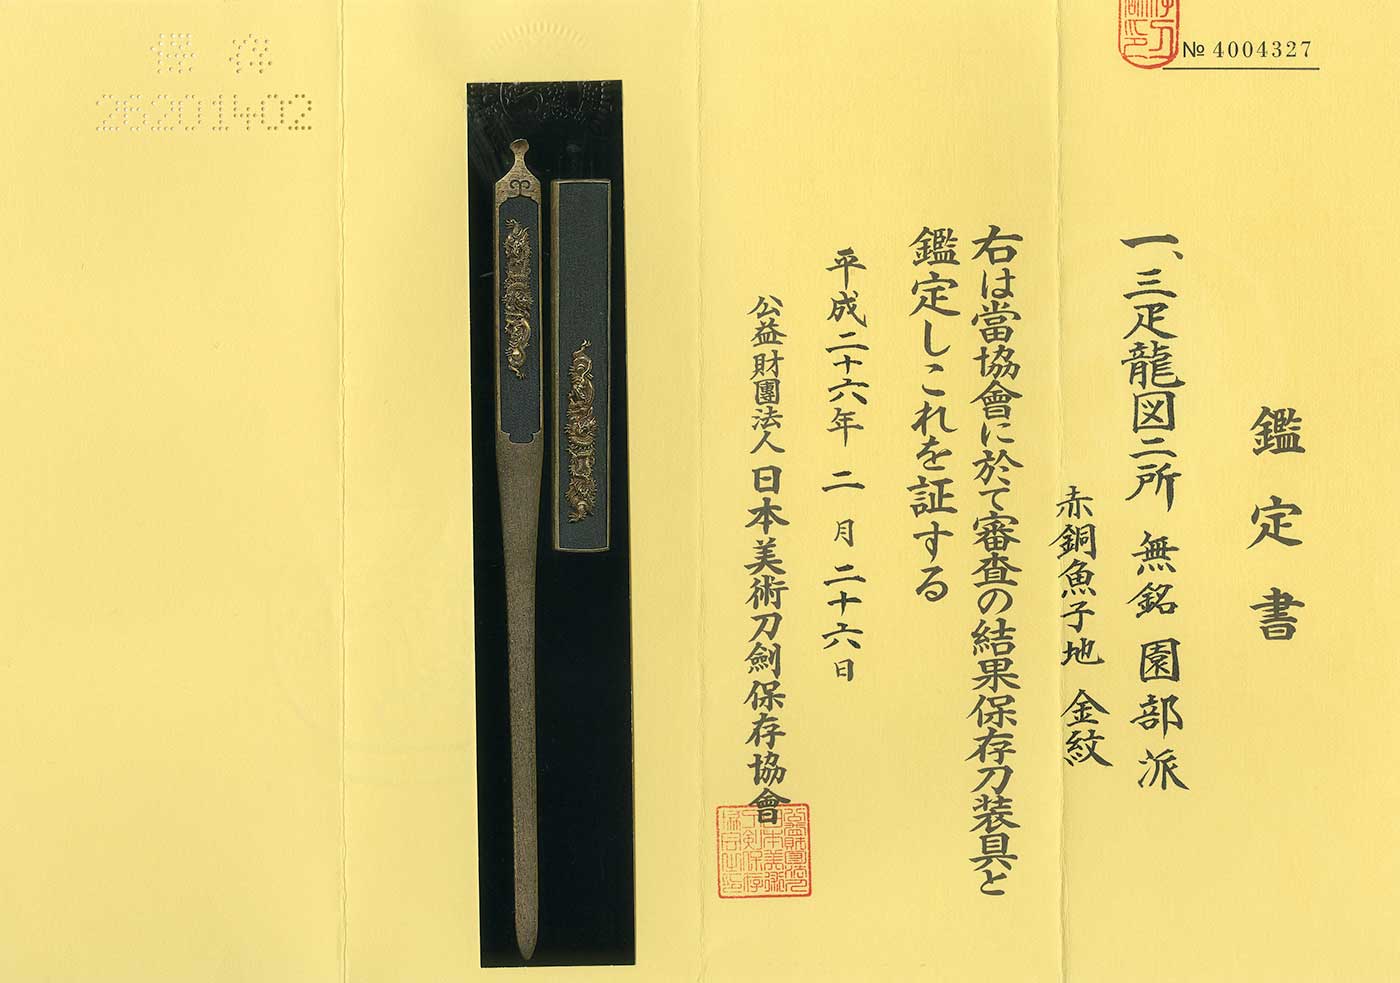 № 4004327
鑑定書
一、三疋龍図二所 無銘 園部派
赤銅魚子地 金紋
右は當協會に於て審査の結果保存刀装具と
鑑定しこれを証する
平成二十六年 二月二十六日
公益財團法人 日本美術刀劍保存協會
保存
26201402